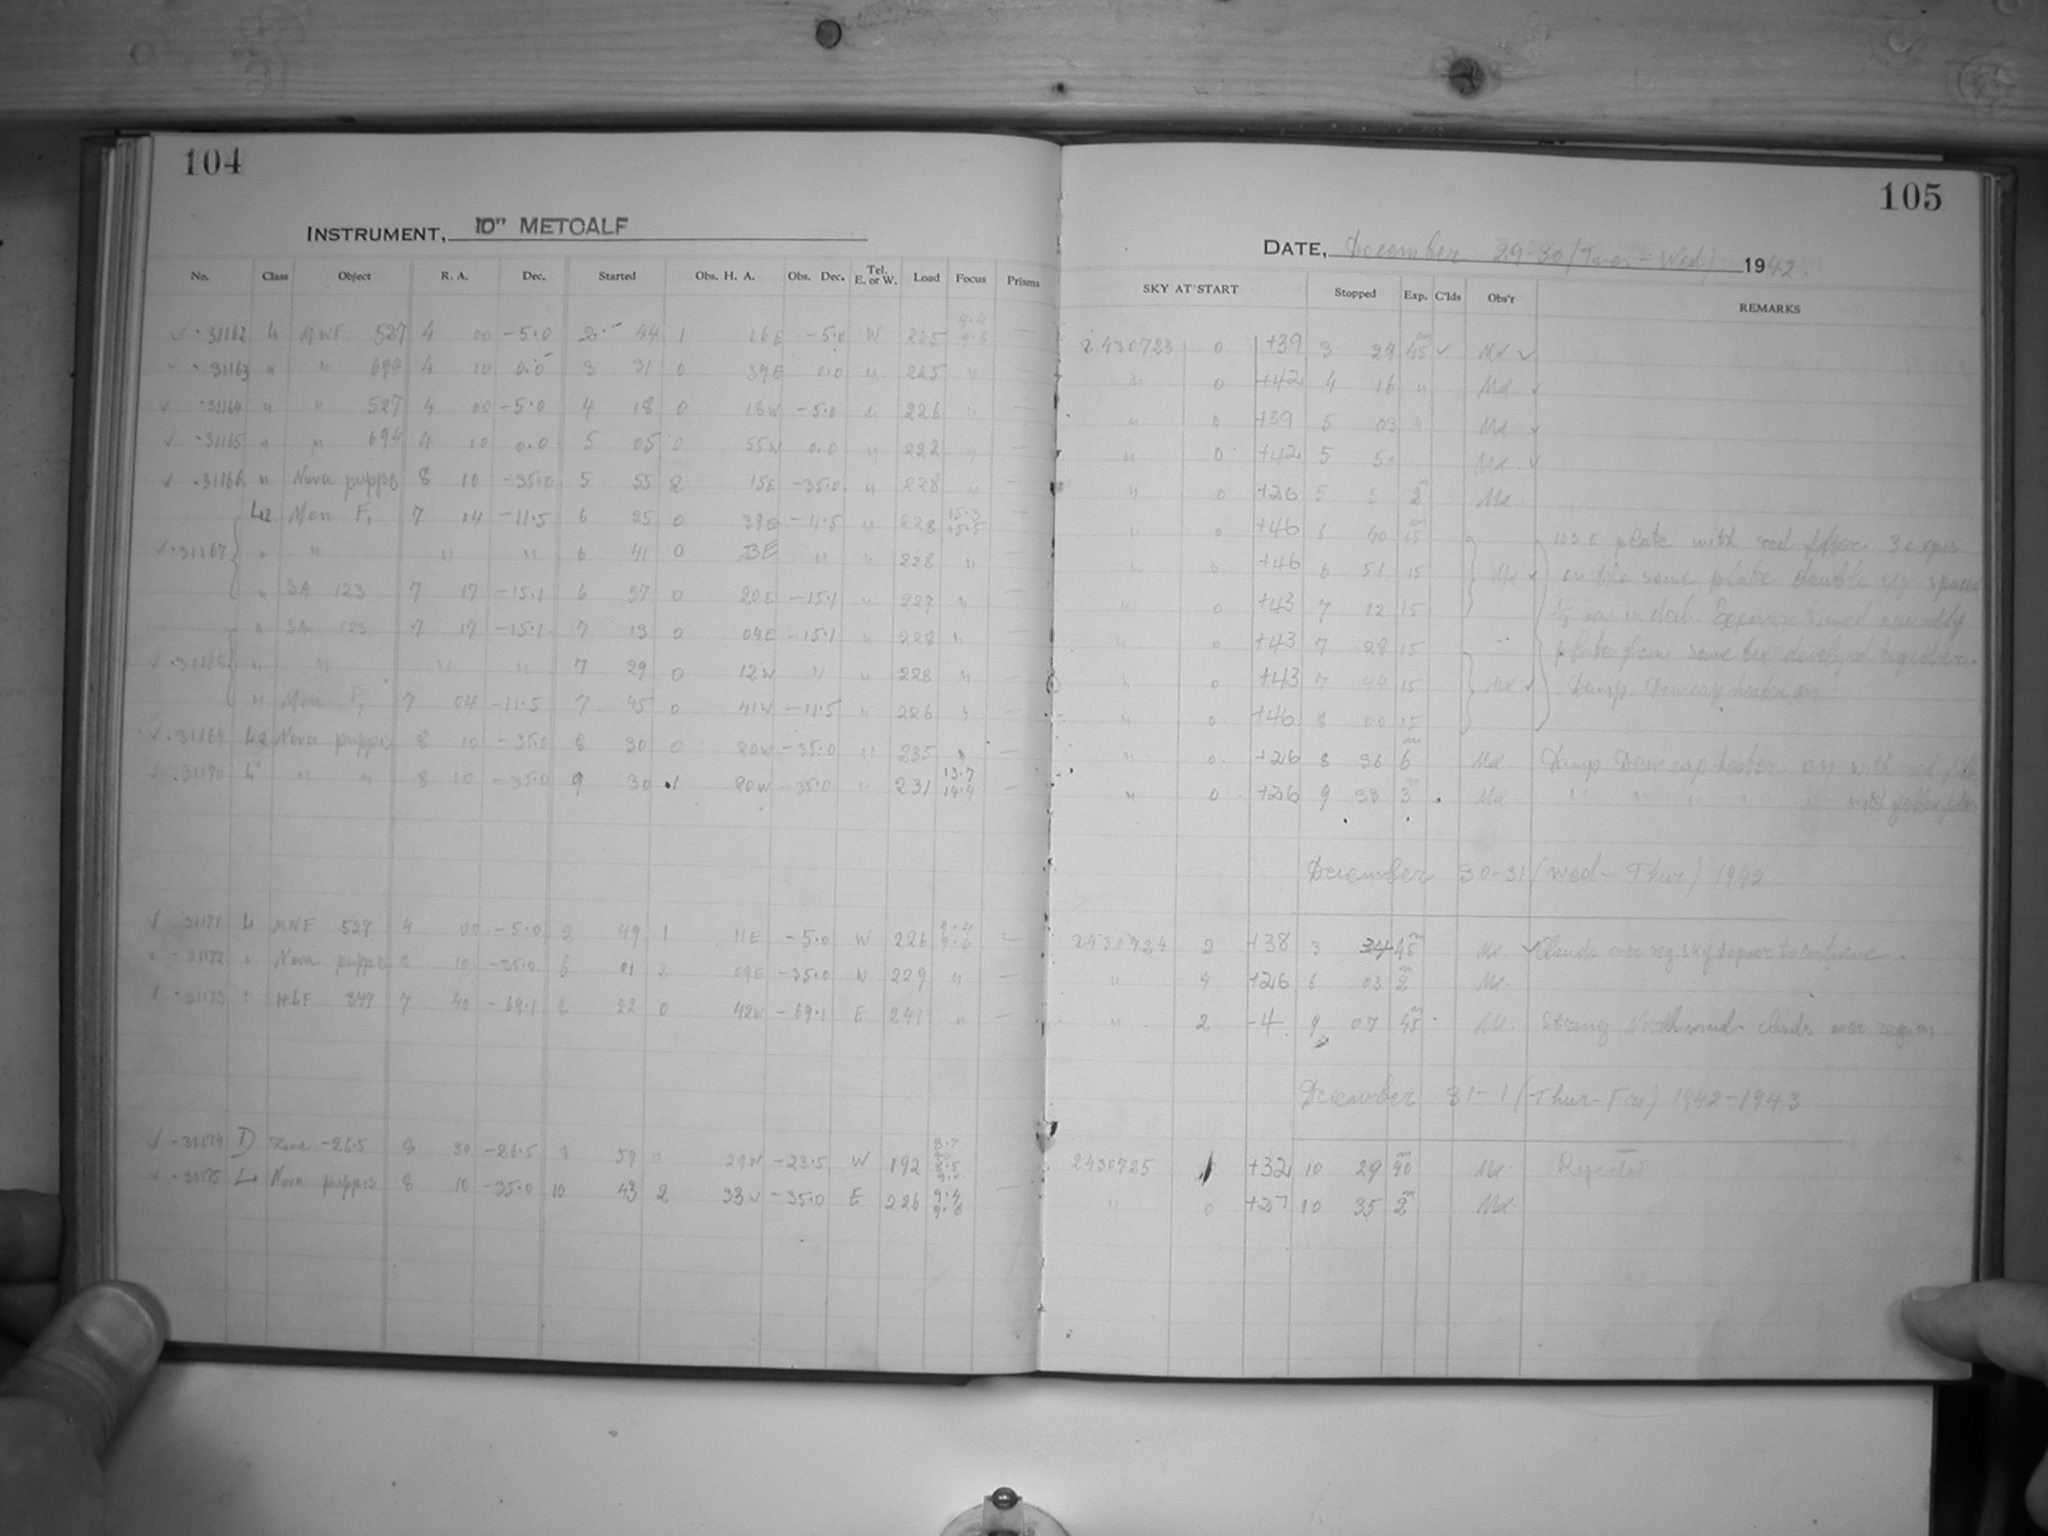 104
INSTRUMENT, 10" METCALF
No. Class Object R. A. Dec. Started Obs. H. A. Obs. Dec. Tel. E. or W. Load Focus Prisms
✓ · 31162 L MWF 527 4 00 -5.0 2 44 1 16E -5.0 W 225 9.4 9.6 —
✓ · 31163 " " 694 4 10 0.0 3 31 0 39E 0.0 " 225 " —
✓ · 31164 " " 527 4 00 -5.0 4 18 0 18W -5.0 " 226 " —
✓ · 31165 " " 694 4 10 0.0 5 05 0 55W 0.0 " 222 " —
✓ · 31166 " Nova puppis 8 10 -35.0 5 55 2 15E -35.0 " 228 " —
Mon F, 7 04 -11.5 6 25 0 39E -11.5 " 228 15.3 15.5 —
✓ · 31167 " " " " 6 41 0 23E " " 228 "
" SA 123 7 17 -15.1 6 57 0 20E -15.1 " 229 " —
" SA 123 7 17 -15.1 7 13 0 04E -15.1 " 228 "
✓ · 31168 " " " " 7 29 0 12W " " 228 " —
" Mon F, 7 04 -11.5 7 45 0 41W -11.5 " 226 " —
✓ · 31169 Nova puppis 8 10 -35.0 8 30 0 20W -35.0 " 235 " —
31170 L " " 8 10 -35.0 9 30 1 20W -35.0 " 231 13.7 14.4 —
✓ 31171 L MWF 527 4 00 -5.0 2 49 1 11E -5.0 W 226 9.4 9.6 —
31172 " Nova puppis 8 10 -35.0 6 01 2 09E -35.0 W 229 " —
31173 " HLF 7 40 -69.1 8 22 0 42W -69.1 E 241 " —
✓ · 31174 D Zone -26.5 8 30 -26.5 8 59 0 29W -23.5 W 192
31175 L Nova puppis 8 10 -35.0 10 43 2 33W -35.0 E 226 9.4 9.6 —
105
DATE, December 29-30 (Tues - Wed) 1942.
SKY AT START Stopped Exp. C'lds Obs'r REMARKS
2430723 0 +39 3 29 45 m ✓ Md ✓
" 0 +42 4 16 " Md ✓
" 0 +39 5 03 " Md ✓
" 0 +42 5 5 Md ✓
" 0 +26 5 5 2 m Md
" 0 +46 6 40 15 m 103 E plate with red filter 3 expos
" 0 +46 6 51 15 Md ✓ on the same plate double exp spaced
" 0 +43 7 12 15 in dec.
" 0 +43 7 28 15 plate from same box developed together.
" 0 +43 7 44 15 Md ✓ Damp Dewcap heater on.
" 0 +46 8 00 15
" 0 +26 8 36 6 m Md Damp Dewcap heater on with red
" 0 +26 9 33 3 m Md " " " " " with yellow filter
December 30-31 (Wed - Thur) 1942
2430724 2 +38 3 34 45 m Md ✓ Clouds over reg.
" 4 +26 6 03 2 m Md.
" 2 -4 9 07 45 Md. Strong North wind clouds over region
December 31-1 (Thur-Fri) 1942-1943
2430725 +32 10 29 90 m Md. Rejected
" 0 +27 10 35 2 m Md.